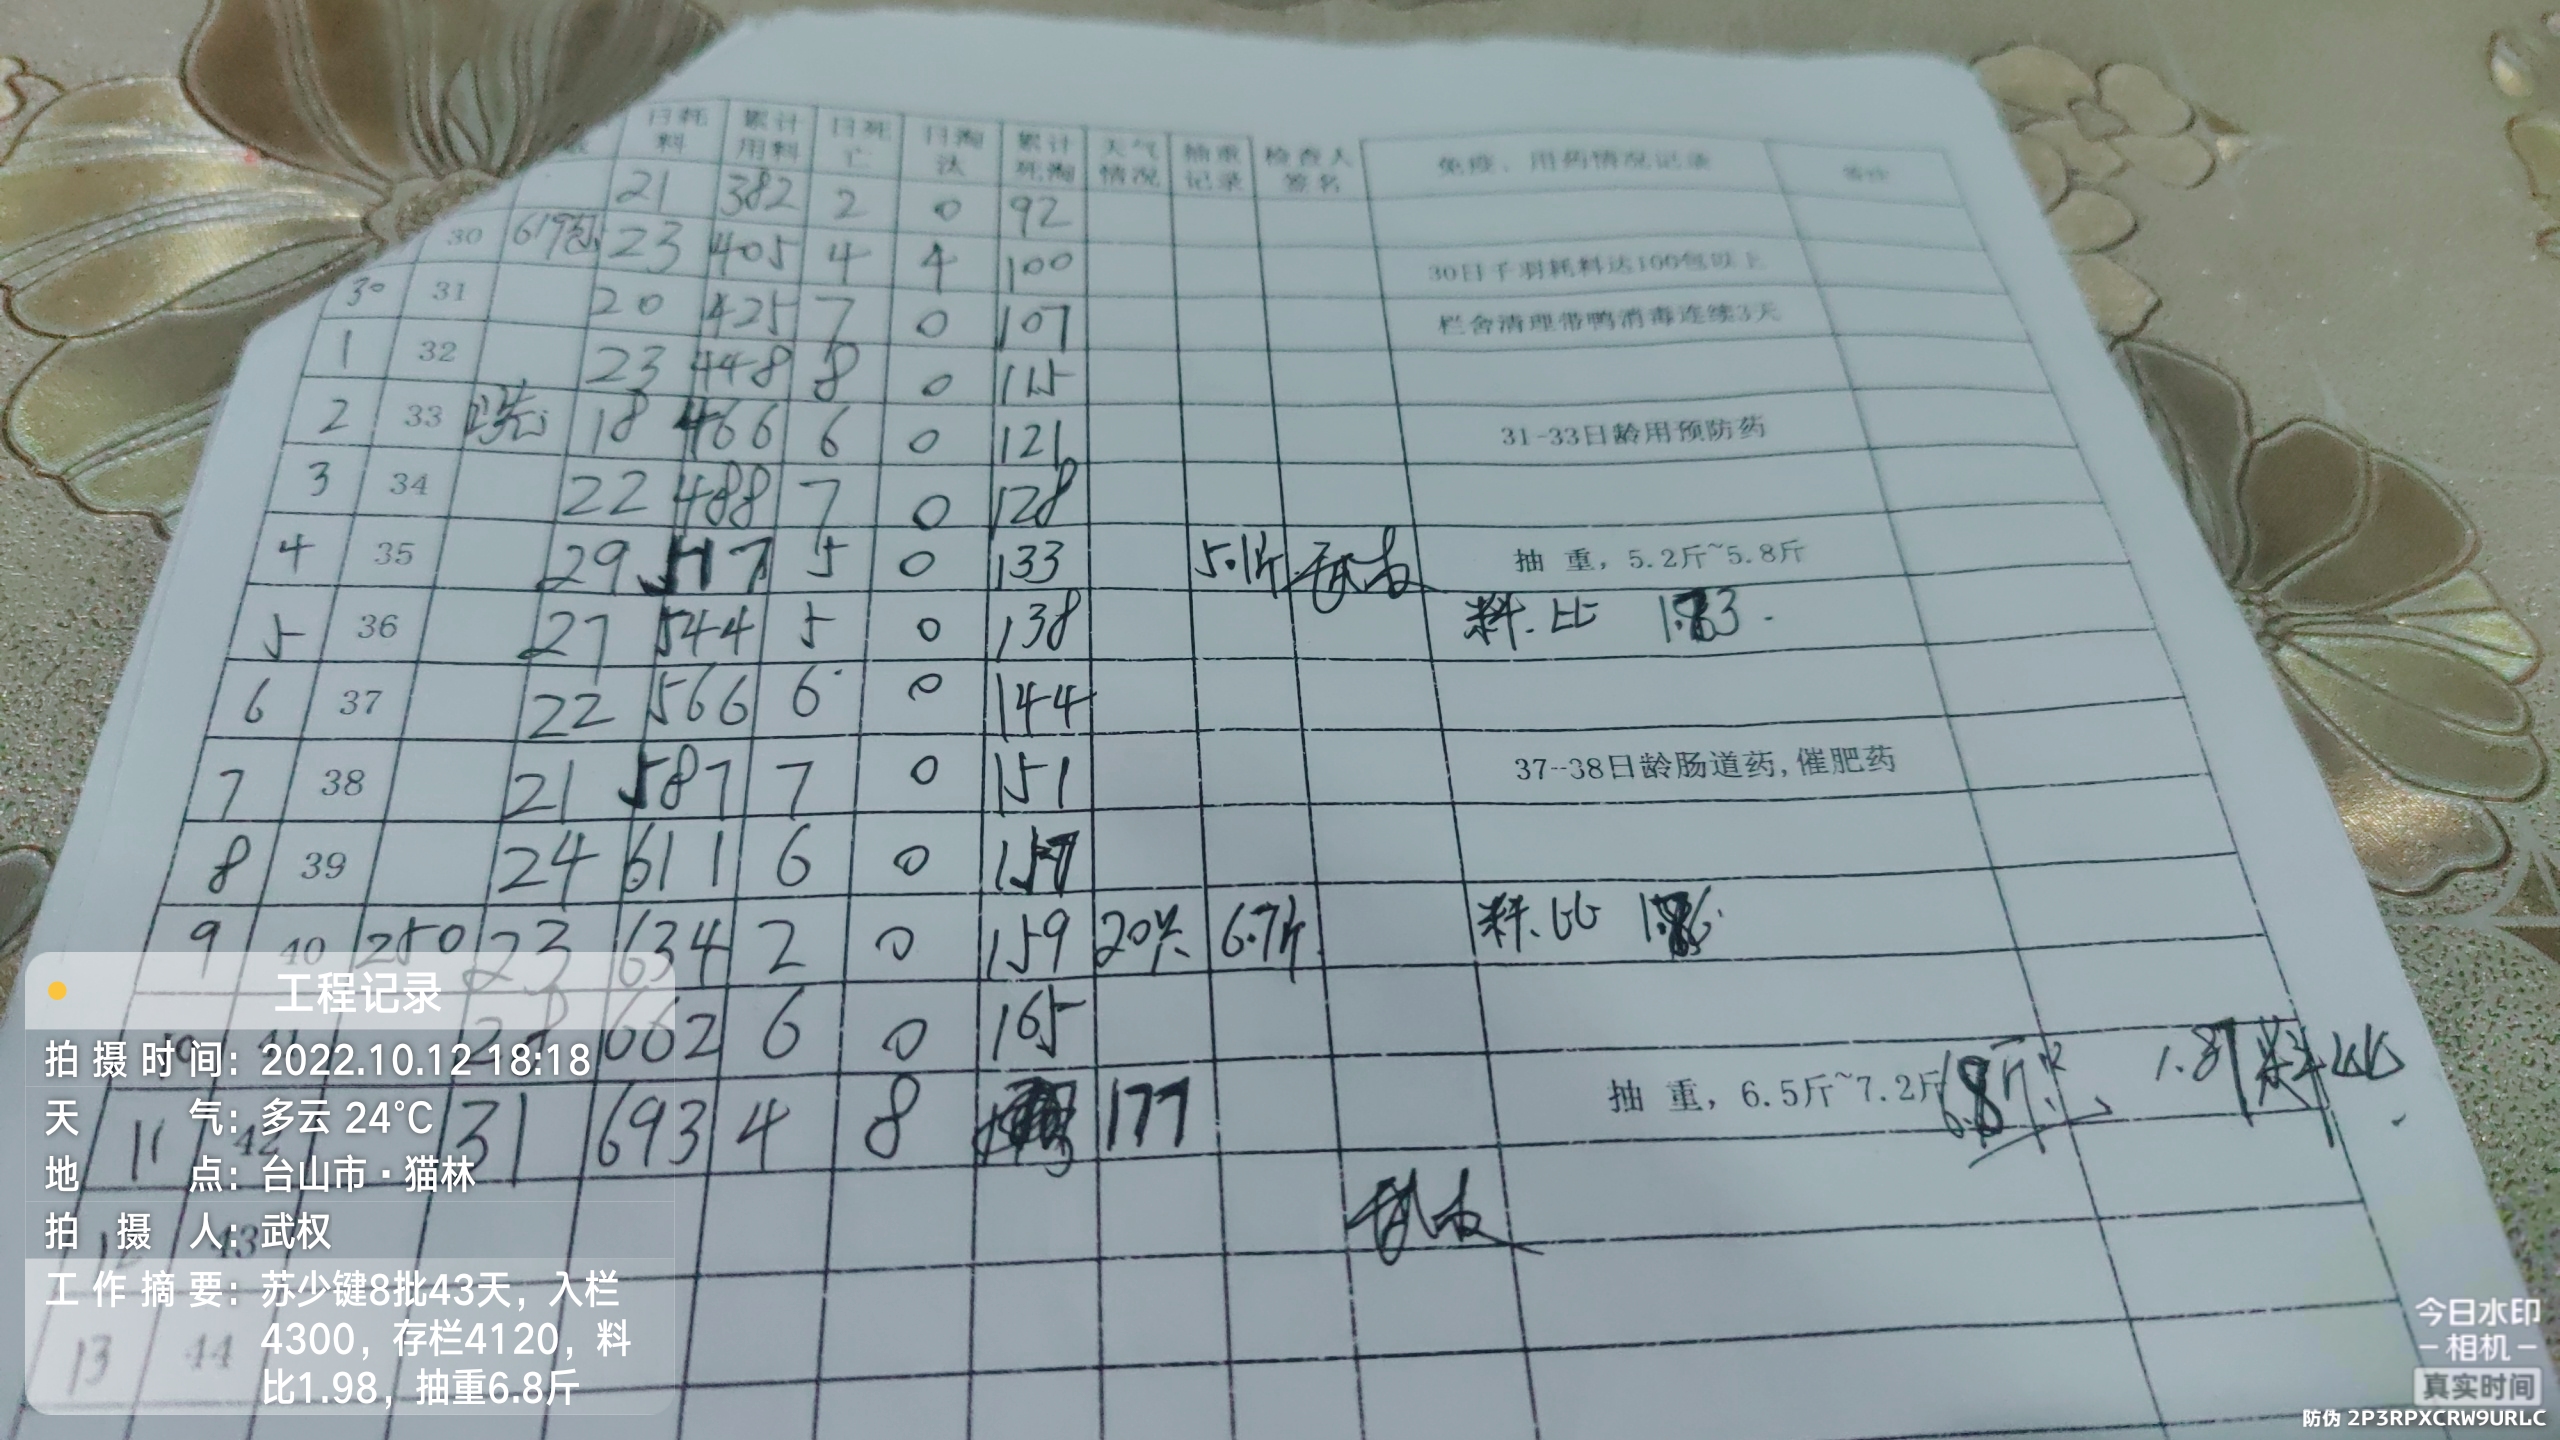 日耗料 累计用料 日死亡 日淘汰 累计死淘 天气情况 抽重记录 检查人签名 免疫、用药情况记录 备注
21 382 2 0 92
30 619包 23 405 4 4 100 30日千羽耗料达100包以上
30 31 20 425 7 0 107 栏舍清理带鸭消毒连续3天
1 32 23 448 8 0 115
2 33 18 466 6 0 121 31-33日龄用预防药
3 34 22 488 7 0 128
4 35 29 517 5 0 133 5.1斤 抽 重，5.2斤~5.8斤
5 36 27 544 5 0 138 料.比
6 37 22 566 6 0 144
7 38 21 587 7 0 151 37--38日龄肠道药,催肥药
8 39 24 611 6 0 157
9 40 250 23 634 2 0 159 20只 6.7斤 料.比
10 41 28 662 6 0 165
11 42 31 693 4 8 177 抽 重，6.5斤~7.2斤 6.8斤 1.87 料比
12 43
13 44
工程记录
拍摄时间：2022.10.12 18:18
天气：多云 24℃
地点：台山市·猫林
拍摄人：武权
工作摘要：苏少键8批43天，入栏
4300，存栏4120，料
比1.98，抽重6.8斤
今日水印
相机
真实时间
防伪 2P3RPXCRW9URLC